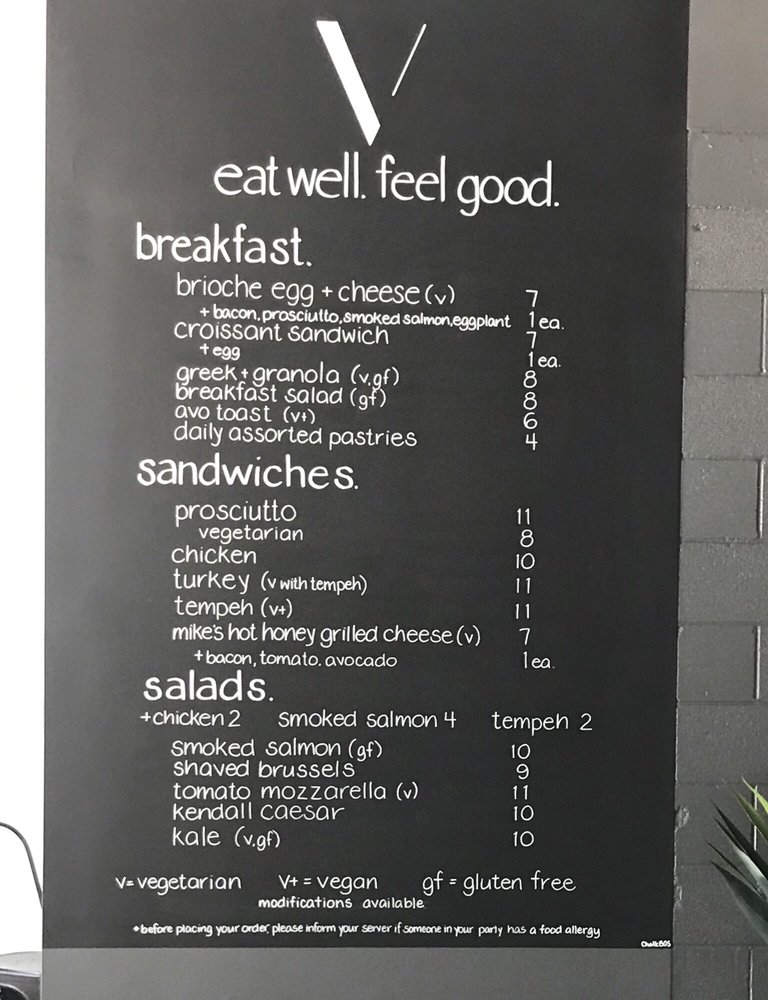 V
eat well. feel good.
breakfast.
brioche egg + cheese (v) 7
+ bacon, prosciutto, smoked salmon, eggplant 1 ea.
croissant sandwich 7
+ egg 1 ea.
greek + granola (v,gf) 8
breakfast salad (gf) 8
avo toast (v+) 6
daily assorted pastries 4
sandwiches.
prosciutto 11
vegetarian 8
chicken 10
turkey (v with tempeh) 11
tempeh (v+) 11
mike's hot honey grilled cheese (v) 7
+ bacon, tomato, avocado 1 ea.
salads.
+chicken 2 smoked salmon 4 tempeh 2
smoked salmon (gf) 10
shaved brussels 9
tomato mozzarella (v) 11
kendall caesar 10
kale (v,gf) 10
v= vegetarian v+ = vegan gf = gluten free
modifications available
*before placing your order, please inform your server if someone in your party has a food allergy
ChalkBOS